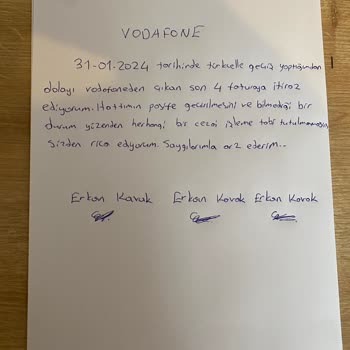 VODAFONE
31-01-2024 tarihinde türkcelle geçiş yaptığımdan
dolayı vodafoneden çıkan son 4 faturaya itiraz
ediyorum. Hattımın pasife geçirilmesini ve bilmediğim bir
durum yüzünden herhangi bir cezai işleme tabi tutulmamamı
sizden rica ediyorum. Saygılarımla arz ederim..
Erkan Kavak Erkan Kavak Erkan Kavak